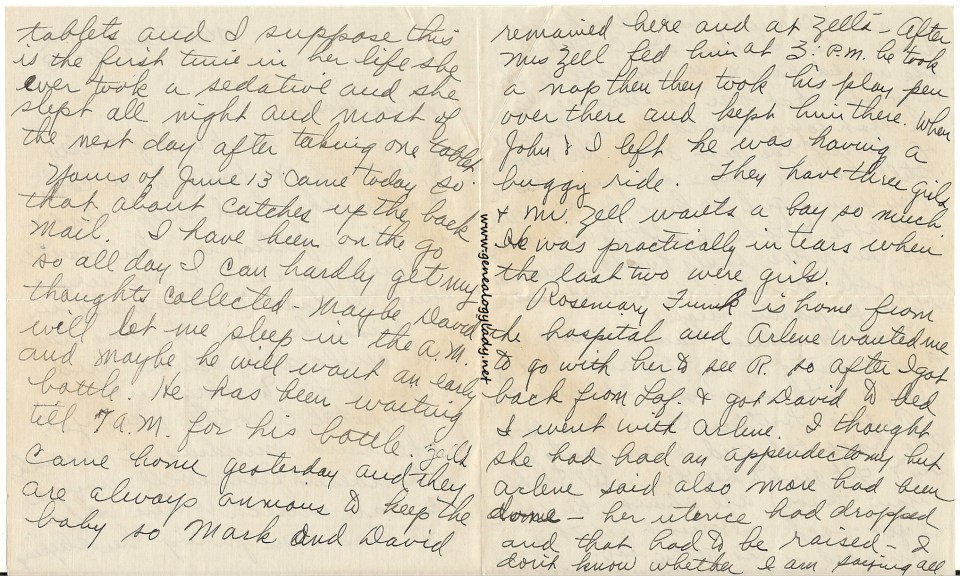 tablets and I suppose this
is the first time in her life she
ever took a sedative and she
slept all night and most of
the next day after taking one tablet.
Yours of June 13 came today so
that about catches up the back
mail. I have been on the go
so all day I can hardly get my
thoughts collected - Maybe David
will let me sleep in the A.M.
and maybe he will want an early
bottle. He has been waiting
till 7 A.M. for his bottle. Zells
came home yesterday and they
are always anxious to keep the
baby so Mark and David
remained here and at Zells - After
Mrs Zell fed him at 3: P.M. he took
a nap then they took his play pen
over there and kept him there. When
John & I left he was having a
buggy ride. They have three girls
& Mr. Zell wants a boy so much
He was practically in tears when
the last two were girls.
Rosemary Funk is home from
the hospital and Arlene wanted me
to go with her to see R. so after I got
back from Laf. & got David to bed
I went with Arlene. I thought
she had had an appendectomy but
Arlene said also more had been
done - her uterice had dropped
and that had to be raised - I
don't know whether I am saying all
www.genealogylady.net